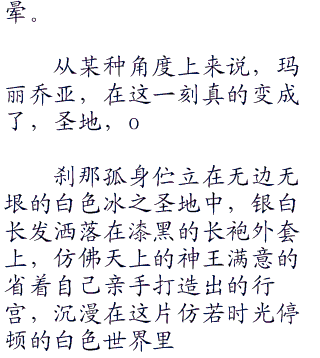 晕。
从某种角度上来说，玛
丽乔亚，在这一刻真的变成
了，圣地，o
刹那孤身伫立在无边无
垠的白色冰之圣地中，银白
长发洒落在漆黑的长袍外套
上，仿佛天上的神王满意的
省着自己亲手打造出的行
宫，沉漫在这片仿若时光停
顿的白色世界里